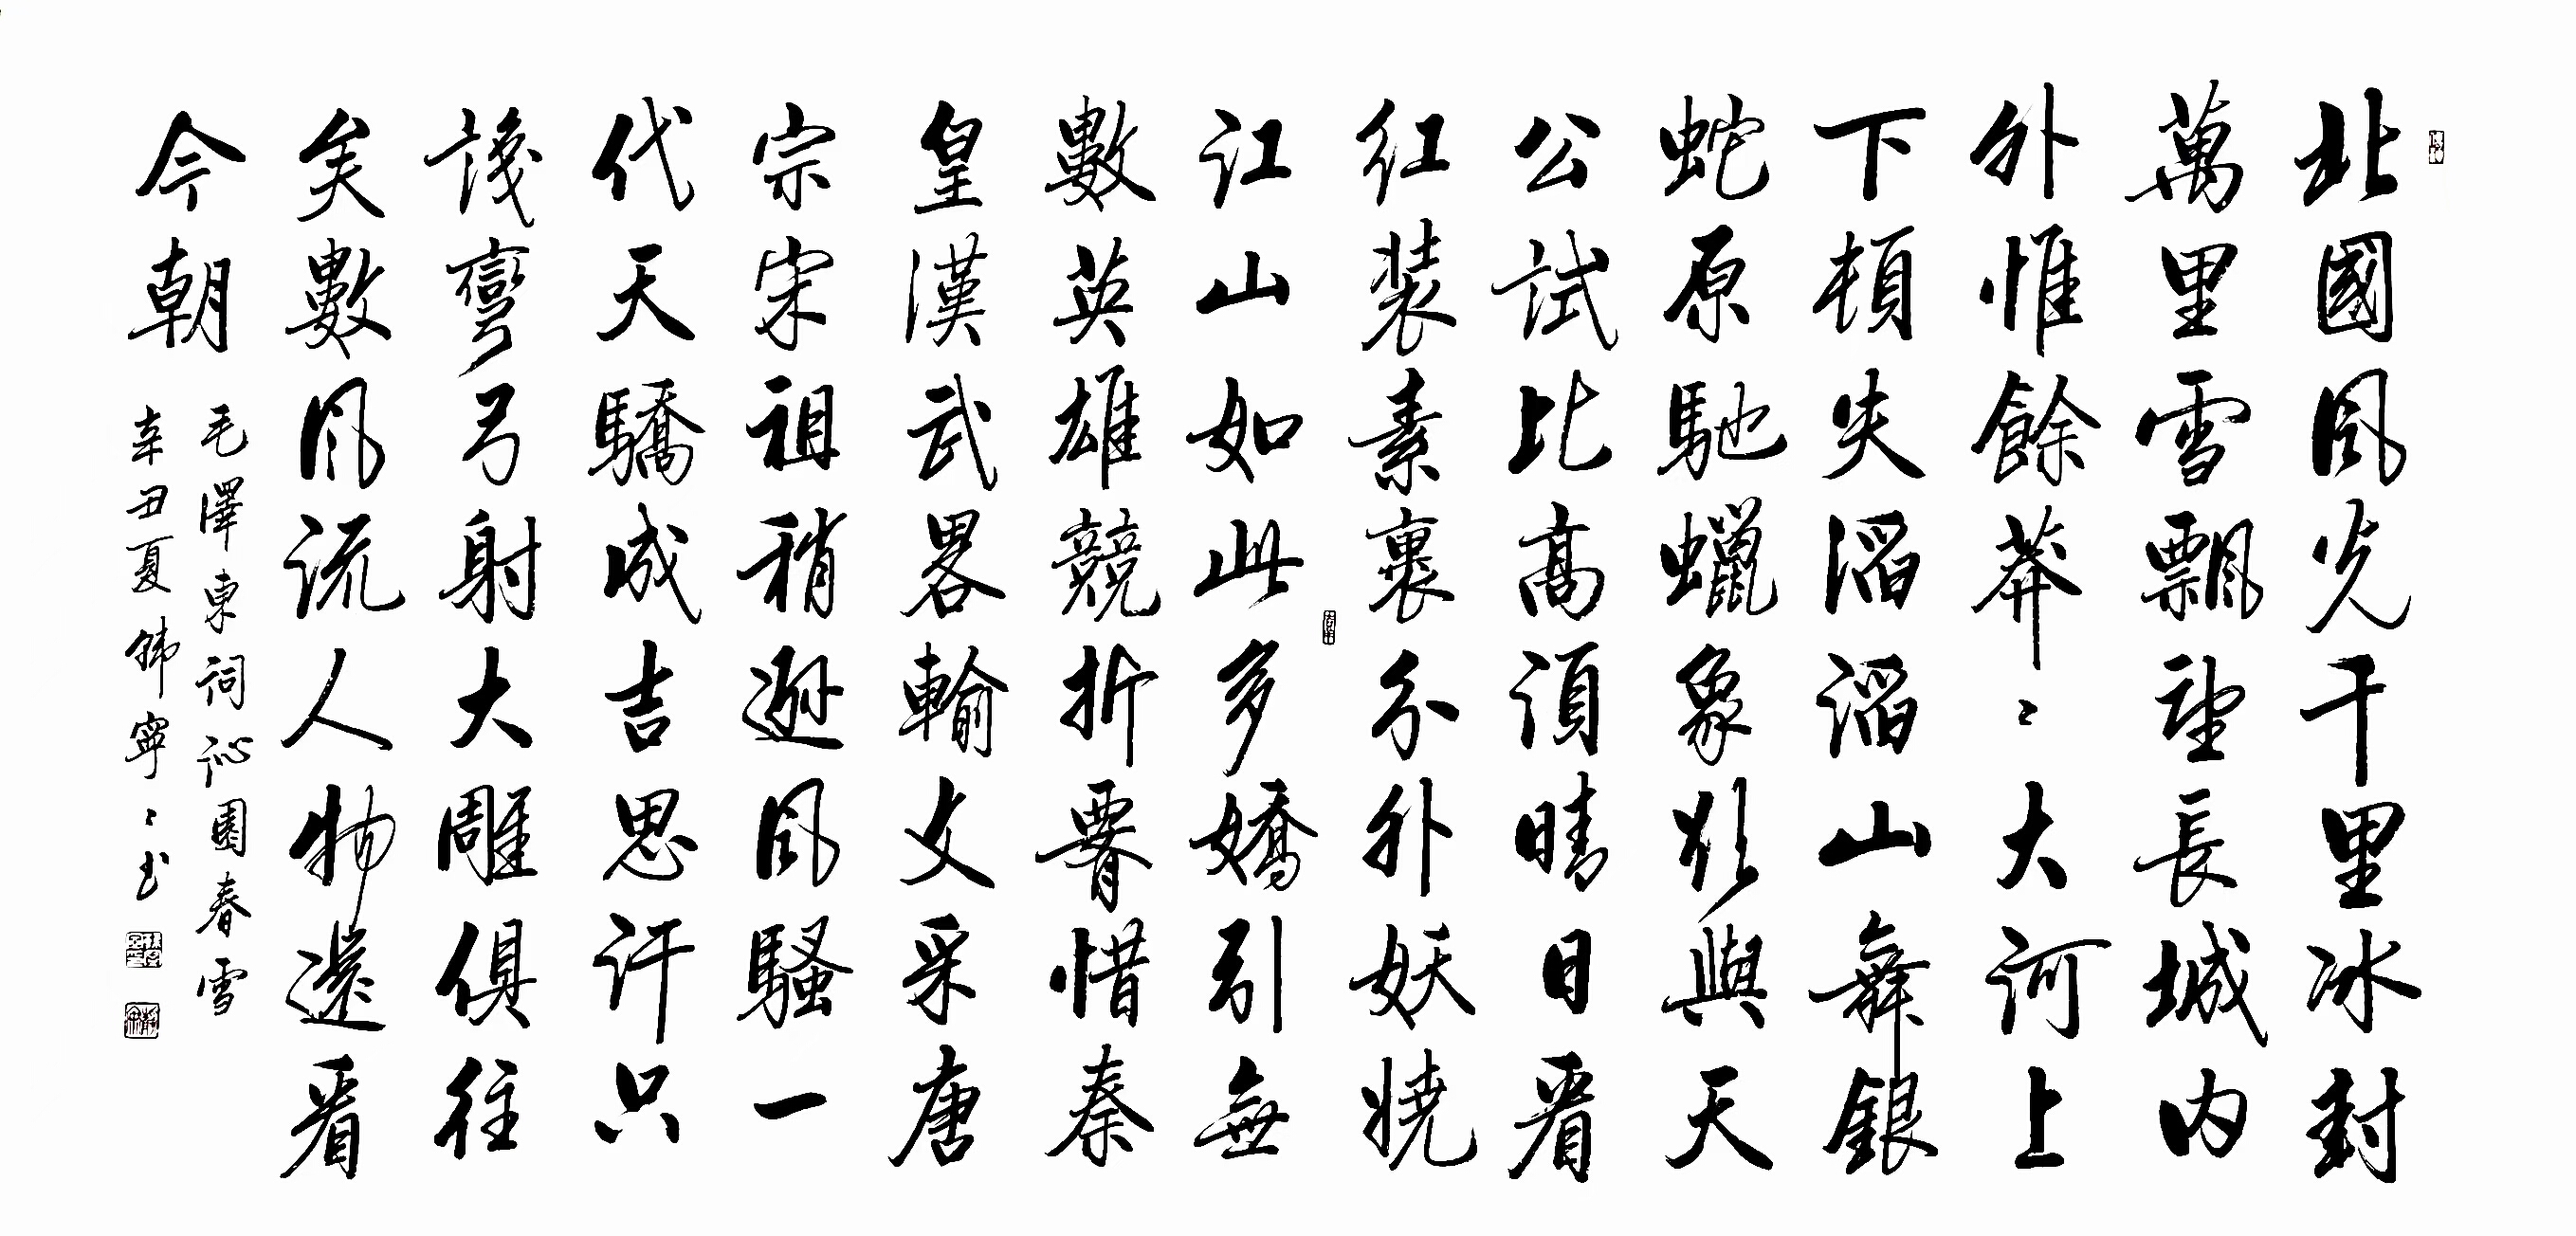 北國風光千里冰封
萬里雪飄望長城內
外惟餘莽〻大河上
下頓失滔滔山舞銀
蛇原馳蠟象欲與天
公試比高須晴日看
紅裝素裹分外妖嬈
江山如此多嬌引無
數英雄競折腰惜秦
皇漢武畧輸文采唐
宗宋祖稍遜風騷一
代天驕成吉思汗只
識彎弓射大雕俱往
矣數風流人物還看
今朝
毛澤東詞沁園春雪
辛丑夏韩寧〻书